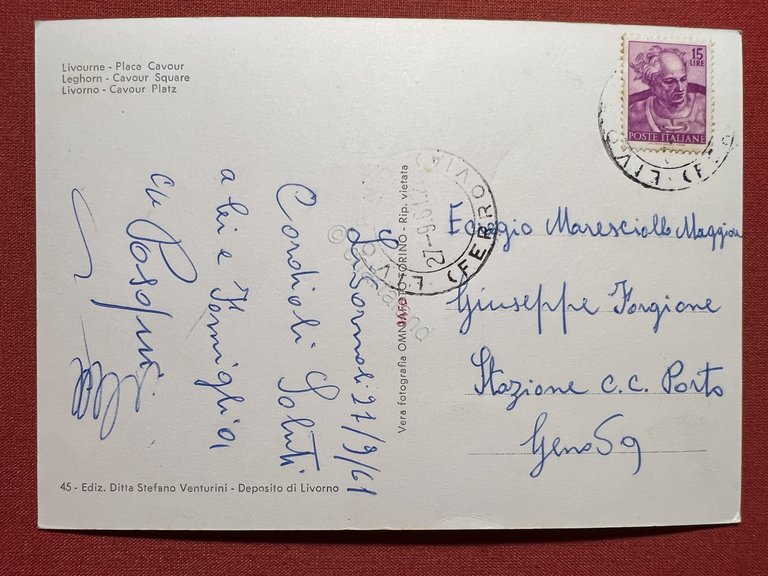 Livourne - Place Cavour
Leghorn - Cavour Square
Livorno - Cavour Platz
15
LIRE
POSTE ITALIANE
LIVO (FE
LIVO (FERROVIA)
27-9-61
Livorno li 27/9/61
Cordiali Saluti
a lei e Famiglia
Vera fotografia OMNIAFOTO TORINO - Rip. vietata
Egregio Maresciallo Maggiore
Giuseppe Forgione
Stazione C.C. Porto
Genova
45 - Ediz. Ditta Stefano Venturini - Deposito di Livorno